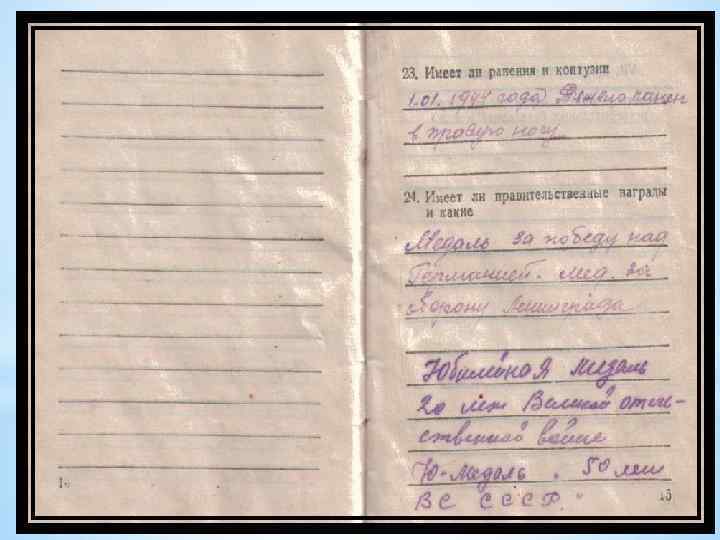 23. Имеет ли ранения и контузии
1.01.1944 года Тяжело ранен
в правую ногу
24. Имеет ли правительственные награды
и какие
Медаль за победу над
Германией. Мед. за
оборону Ленинграда
Юбилейная медаль
20 лет Великой отече-
ственной войне
Ю-медаль. 50 лет
ВС СССР."
15